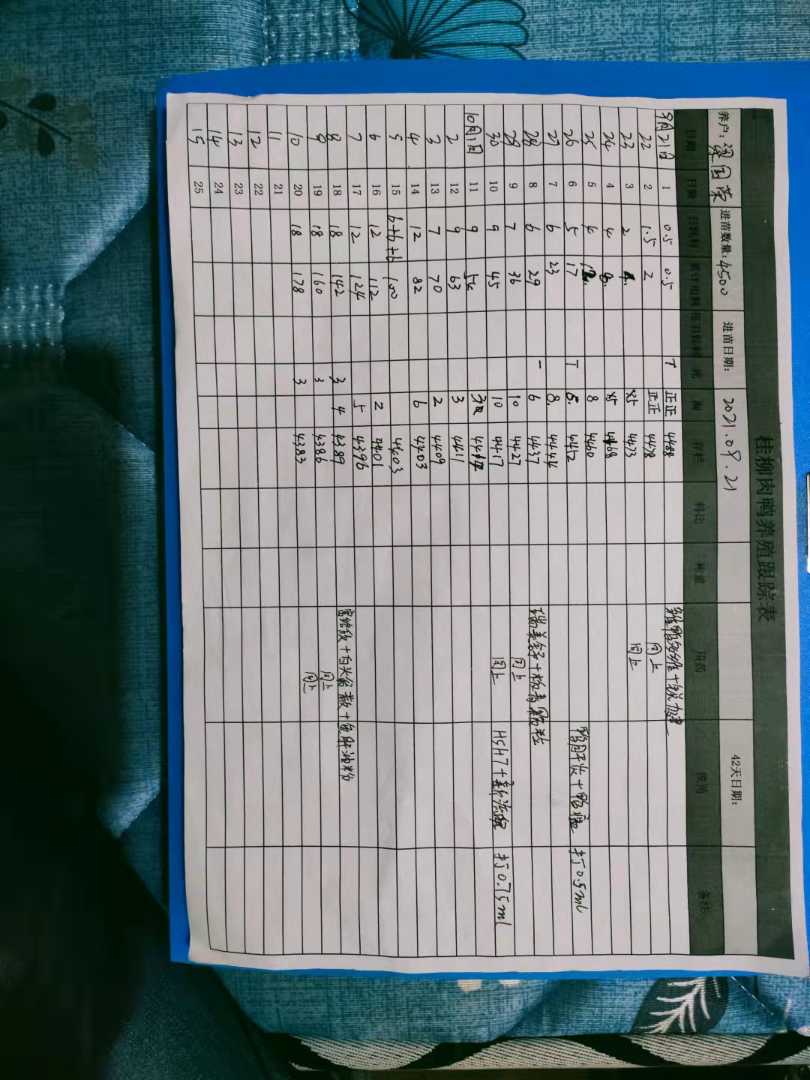 桂柳肉鸭养殖跟踪表
养户: 梁国荣 进苗数量: 4500 进苗日期: 2021.09.21 42天日期:
日期 日龄 日耗料 累计耗料 死 淘 存栏 料比 称重 用药 疫苗 备注
9月21日 1 0.5 0.5 T 正正 4488
22 2 1.5 2 正正 4478 同上
23 3 2 4473 同上
24 4 4 8 4468
25 5 4 12 8 4460
26 6 5 17 T 6 4452 鸭肝炎+鸭瘟 打0.5ml
27 7 6 23 8 4444
28 8 6 29 一 6 4437 瑞美锌+板青颗粒
29 9 7 36 10 4427 同上
30 10 9 45 10 4417 同上 H5H7+新流 打0.75ml
10月1日 11 9 54 4414
2 12 9 63 3 4411
3 13 7 70 2 4409
4 14 12 82 6 4403
5 15 6+6+6 100 4403
6 16 12 112 2 4401
7 17 12 124 5 4396
8 18 18 142 3 4 4389 +白头翁散+鱼肝油粉
9 19 18 160 3 4386 同上
10 20 18 178 3 4383 同上
11 21
12 22
13 23
14 24
15 25